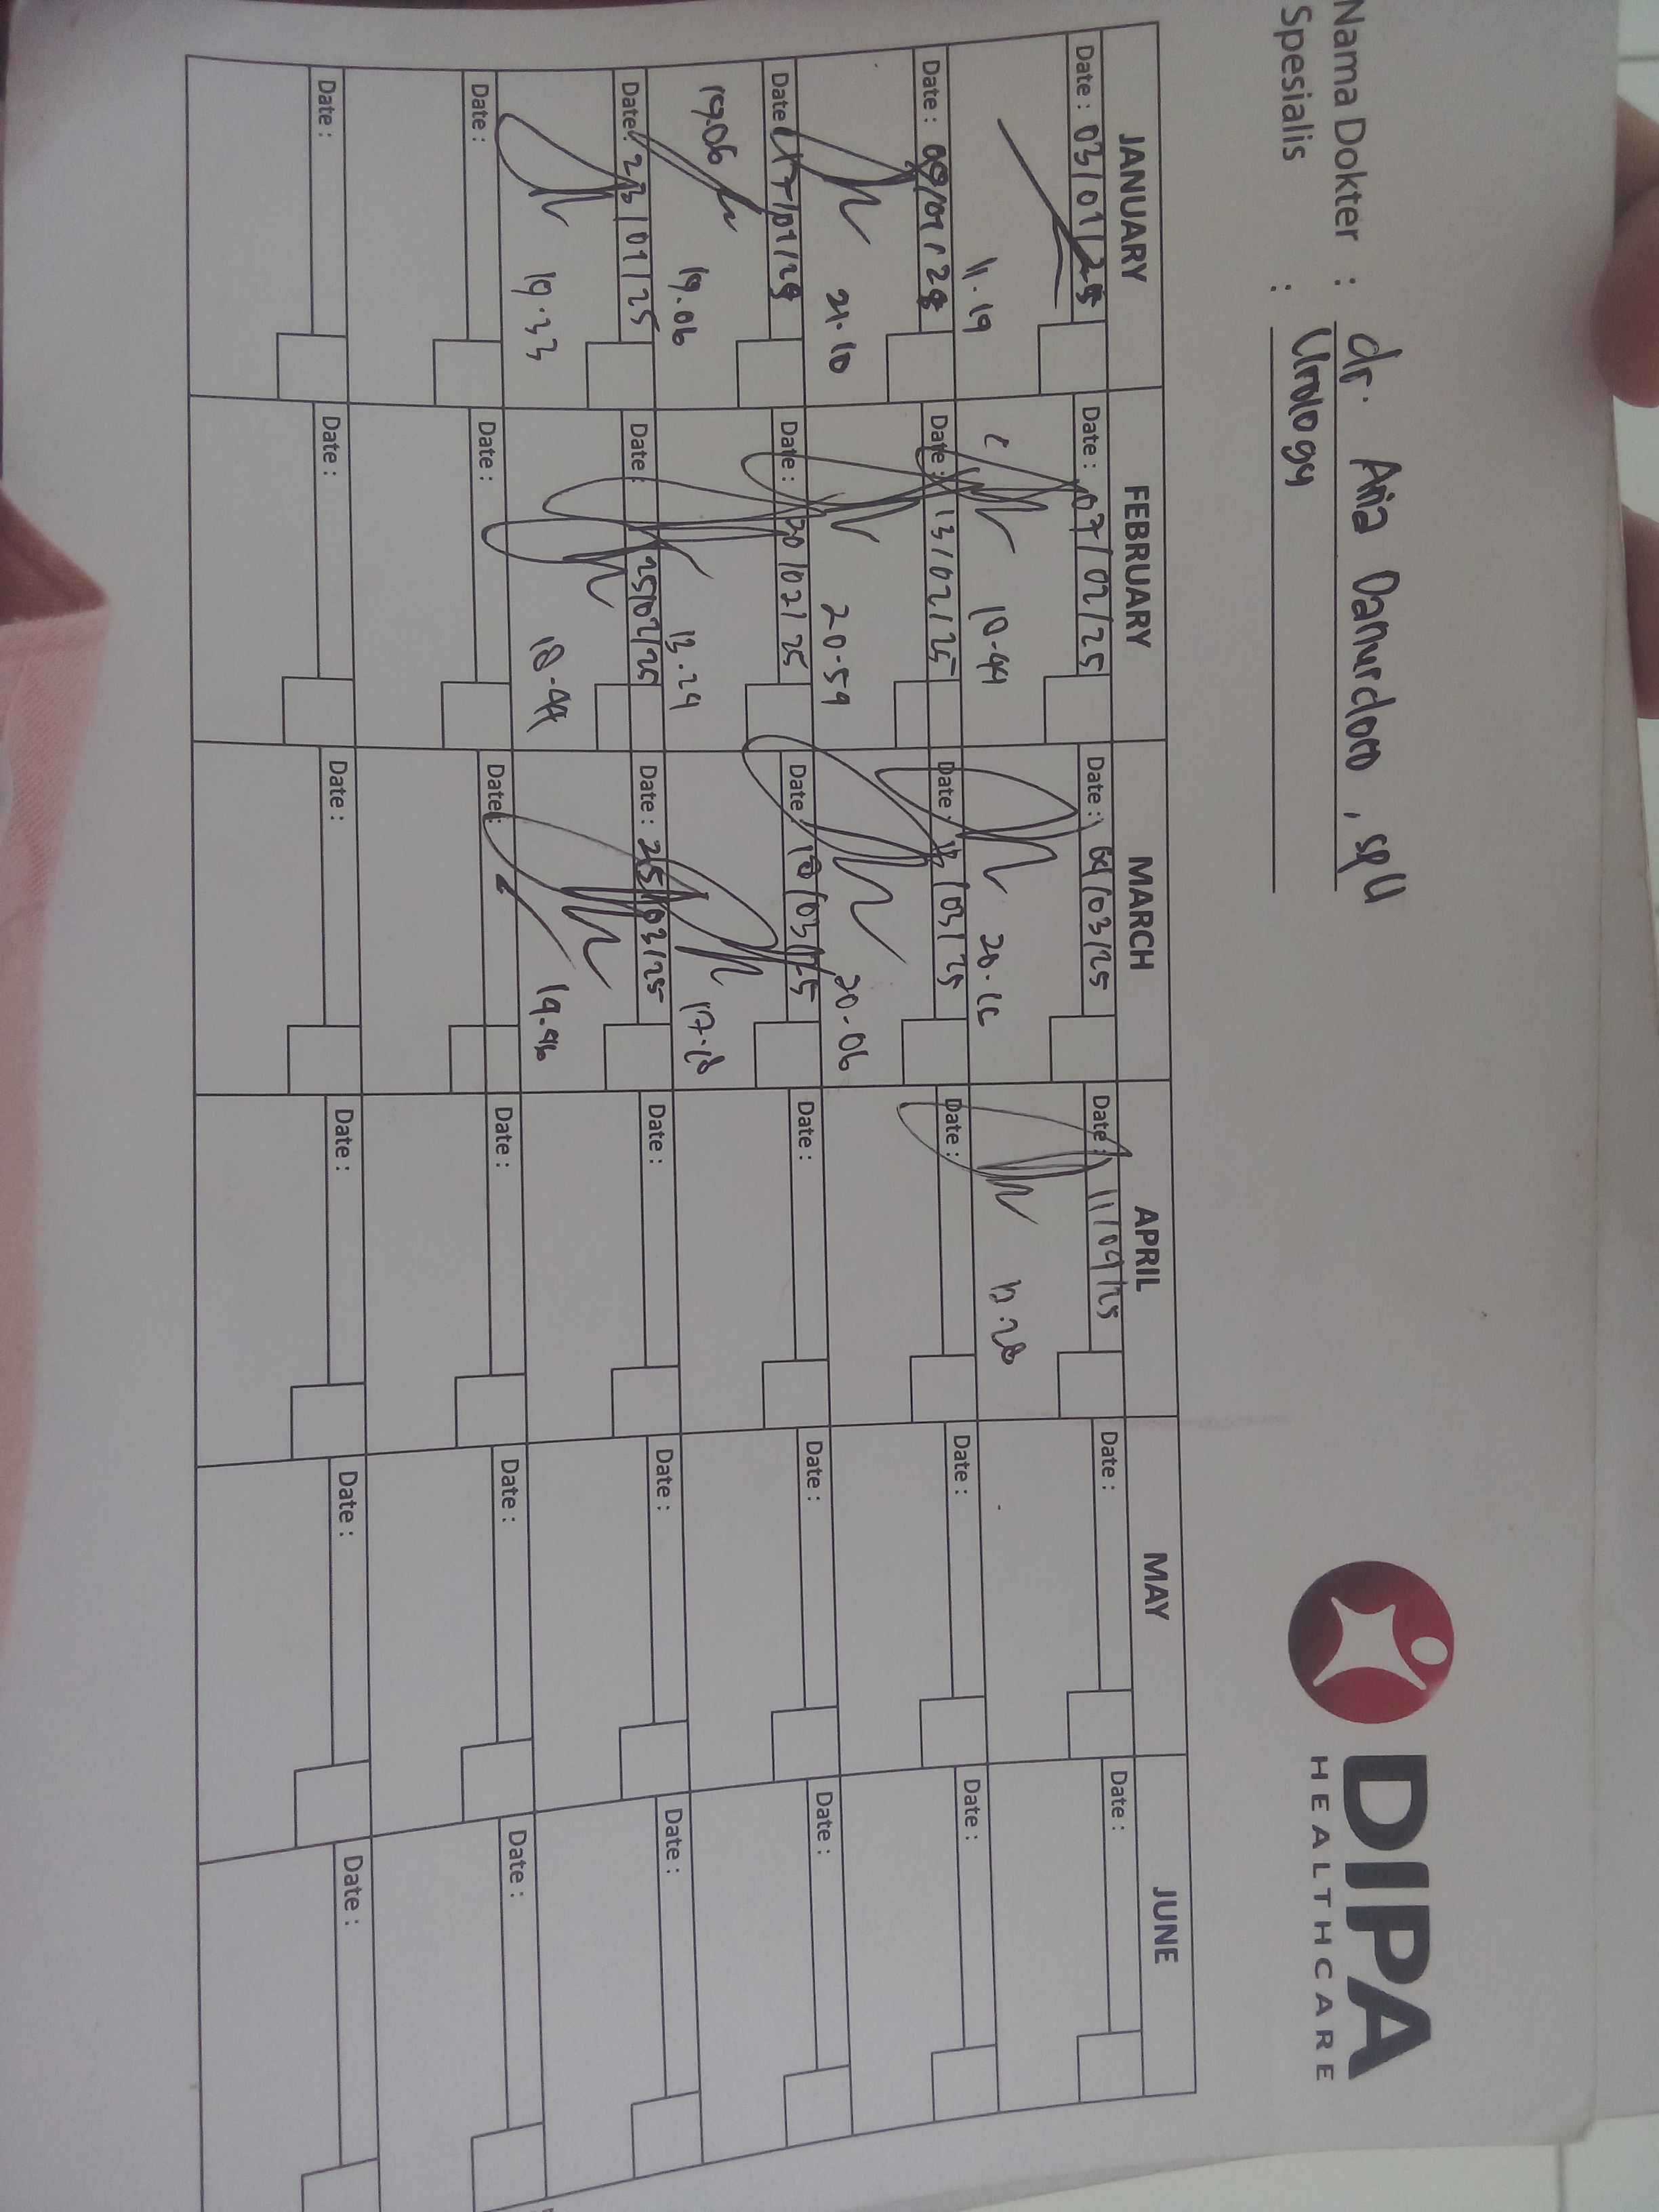 Nama Dokter : dr. Aria Danurdoro, SpU
Spesialis : Urology
DIPA
HEALTHCARE
JANUARY FEBRUARY MARCH APRIL MAY JUNE
Date : 03/01/25 Date : 07/02/25 Date : 04/03/25 Date : 11/04/25 Date : Date :
11.19 10.44 20.16
Date : 09/01/25 Date : 13/02/25 Date : /03/25 Date : Date : Date :
21.10 20.59 20.06
Date : 17/01/25 Date : 20/02/25 Date : 18/03/25 Date : Date : Date :
19.06 19.06 13.24 17.18
Date : 23/01/25 Date : 25/02/25 Date : 25/03/25 Date : Date : Date :
19.33 18.44 19.46
Date : Date : Date : Date : Date : Date :
Date : Date : Date : Date : Date : Date :